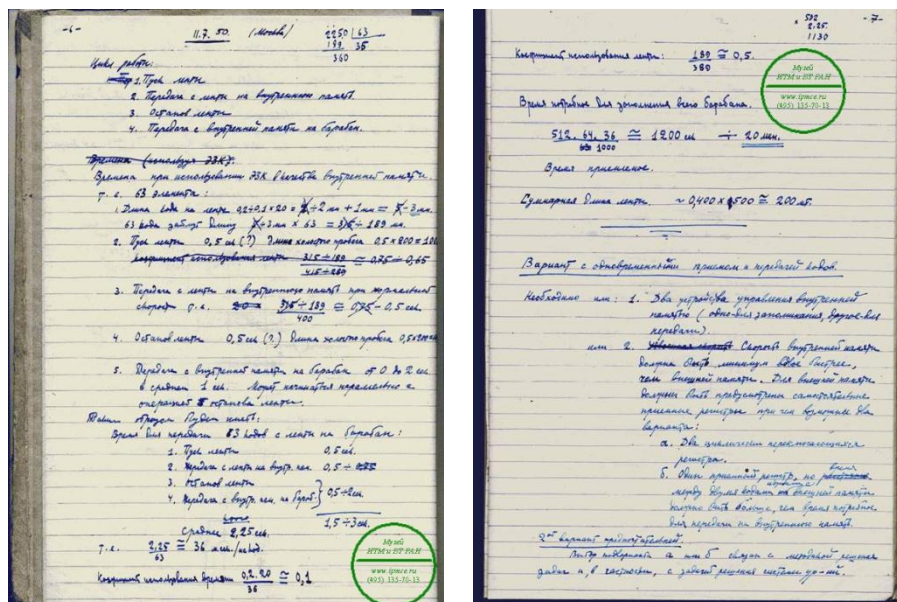 -6-
11.7.50. (Москва)
2250 | 63
189 35
360
Цикл работы:
1. Пуск ленты
2. Передача с ленты на внутреннюю память
3. Останов ленты
4. Передача с внутренней памяти на барабан.
Времена (используя ЭЗК).
Времена при использовании ЭЗК в качестве внутренней памяти.
т.е. 63 элемента:
1. Длина кода на ленте 0,2÷0,1 × 20 = ÷2 мм + 1 мм = ÷3 мм.
63 кода займут длину ÷3 мм × 63 = ÷ 189 мм.
2. Пуск ленты 0,5 сек (?) Длина холостого пробега 0,5×200=100
коэффициент использования ленты 315÷189 / 415÷289 ≅ 0,75÷0,65
3. Передача с ленты на внутреннюю память при нормальной
скорости т.е. 315÷189 / 400 ≅ 0,75 ÷ 0,5 сек.
4. Останов ленты 0,5 сек (?) Длина холостого пробега 0,5×200
5. Передача с внутренней памяти на барабан от 0 до 2 сек
в среднем 1 сек. Может начинаться параллельно с
операцией останова ленты.
Таким образом будем иметь:
Время для передачи 63 кодов с ленты на барабан:
1. Пуск ленты 0,5 сек.
2. Передача с ленты на внутр. пам. 0,5 ÷ 0,75
3. Останов ленты
4. Передача с внутр. пам. на бараб. } 0,5÷2 сек.
1,5÷3 сек.
Среднее 2,25 сек.
т.е. 2,25 / 63 ≅ 36 мсек./код.
Коэффициент использования времени 0,2.20 / 36 ≅ 0,1
Музей
ИТМ и ВТ РАН
www.ipmce.ru
(495) 135-70-13
-7-
502
2,25.
1130
Коэффициент использования ленты: 189 / 380 ≅ 0,5.
Музей
ИТМ и ВТ РАН
www.ipmce.ru
(495) 135-70-13
Время потребное для заполнения всего барабана.
512.64.36 / 1000 ≅ 1200 сек ÷ 20 мин.
Время приемлемое.
Суммарная длина ленты ~ 0,400 × 500 ≅ 200 м.
Вариант с одновременным приемом и передачей кодов.
Необходимо или: 1. Два устройства управления внутренней
памятью (одно для запоминания, другое для
передачи).
или 2. Скорость внутренней памяти
должна быть минимум вдвое быстрее,
чем внешней памяти. Для внешней памяти
должны быть предусмотрены самостоятельные
приемные регистры при чем возможны два
варианта:
а. Два циклически переключающихся
регистра.
б. Один приемный регистр, но время
между двумя кодами на внешней памяти
должно быть больше, чем время потребное
для передачи на внутреннюю память.
2ой вариант предпочтительней.
Выбор подварианта а или б связан с методикой решения
задач и, в частности, с задачей решения системы ур-ний.